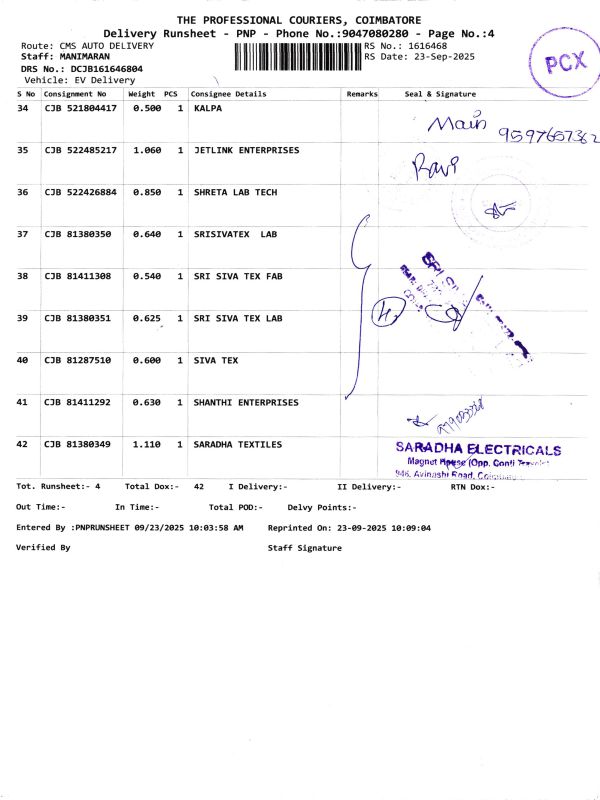 THE PROFESSIONAL COURIERS, COIMBATORE
Delivery Runsheet - PNP - Phone No.:9047080280 - Page No.:4
Route: CMS AUTO DELIVERY RS No.: 1616468
Staff: MANIMARAN RS Date: 23-Sep-2025
DRS No.: DCJB161646804
Vehicle: EV Delivery
PCX
S No Consignment No Weight PCS Consignee Details Remarks Seal & Signature
34 CJB 521804417 0.500 1 KALPA
Main 9597657362
35 CJB 522485217 1.060 1 JETLINK ENTERPRISES
Ravi
36 CJB 522426884 0.850 1 SHRETA LAB TECH
37 CJB 81380350 0.640 1 SRISIVATEX LAB
38 CJB 81411308 0.540 1 SRI SIVA TEX FAB
39 CJB 81380351 0.625 1 SRI SIVA TEX LAB
40 CJB 81287510 0.600 1 SIVA TEX
41 CJB 81411292 0.630 1 SHANTHI ENTERPRISES
42 CJB 81380349 1.110 1 SARADHA TEXTILES
SARADHA ELECTRICALS
Magnet House (Opp. Conti
946, Avinashi Road,
Tot. Runsheet:- 4 Total Dox:- 42 I Delivery:- II Delivery:- RTN Dox:-
Out Time:- In Time:- Total POD:- Delvy Points:-
Entered By :PNPRUNSHEET 09/23/2025 10:03:58 AM Reprinted On: 23-09-2025 10:09:04
Verified By Staff Signature